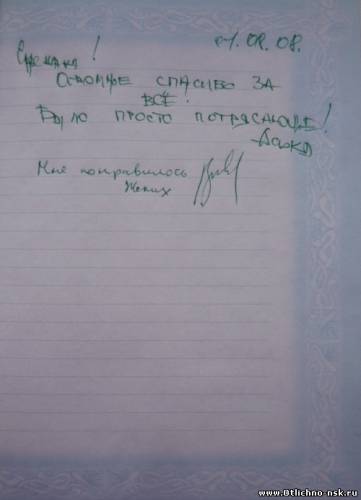 01.08.08.
Сереженька!
Огромное спасибо за
всё!
Было просто потрясающе!
Дашка
Мне понравилось
Жених
www.Otlichno-nsk.ru